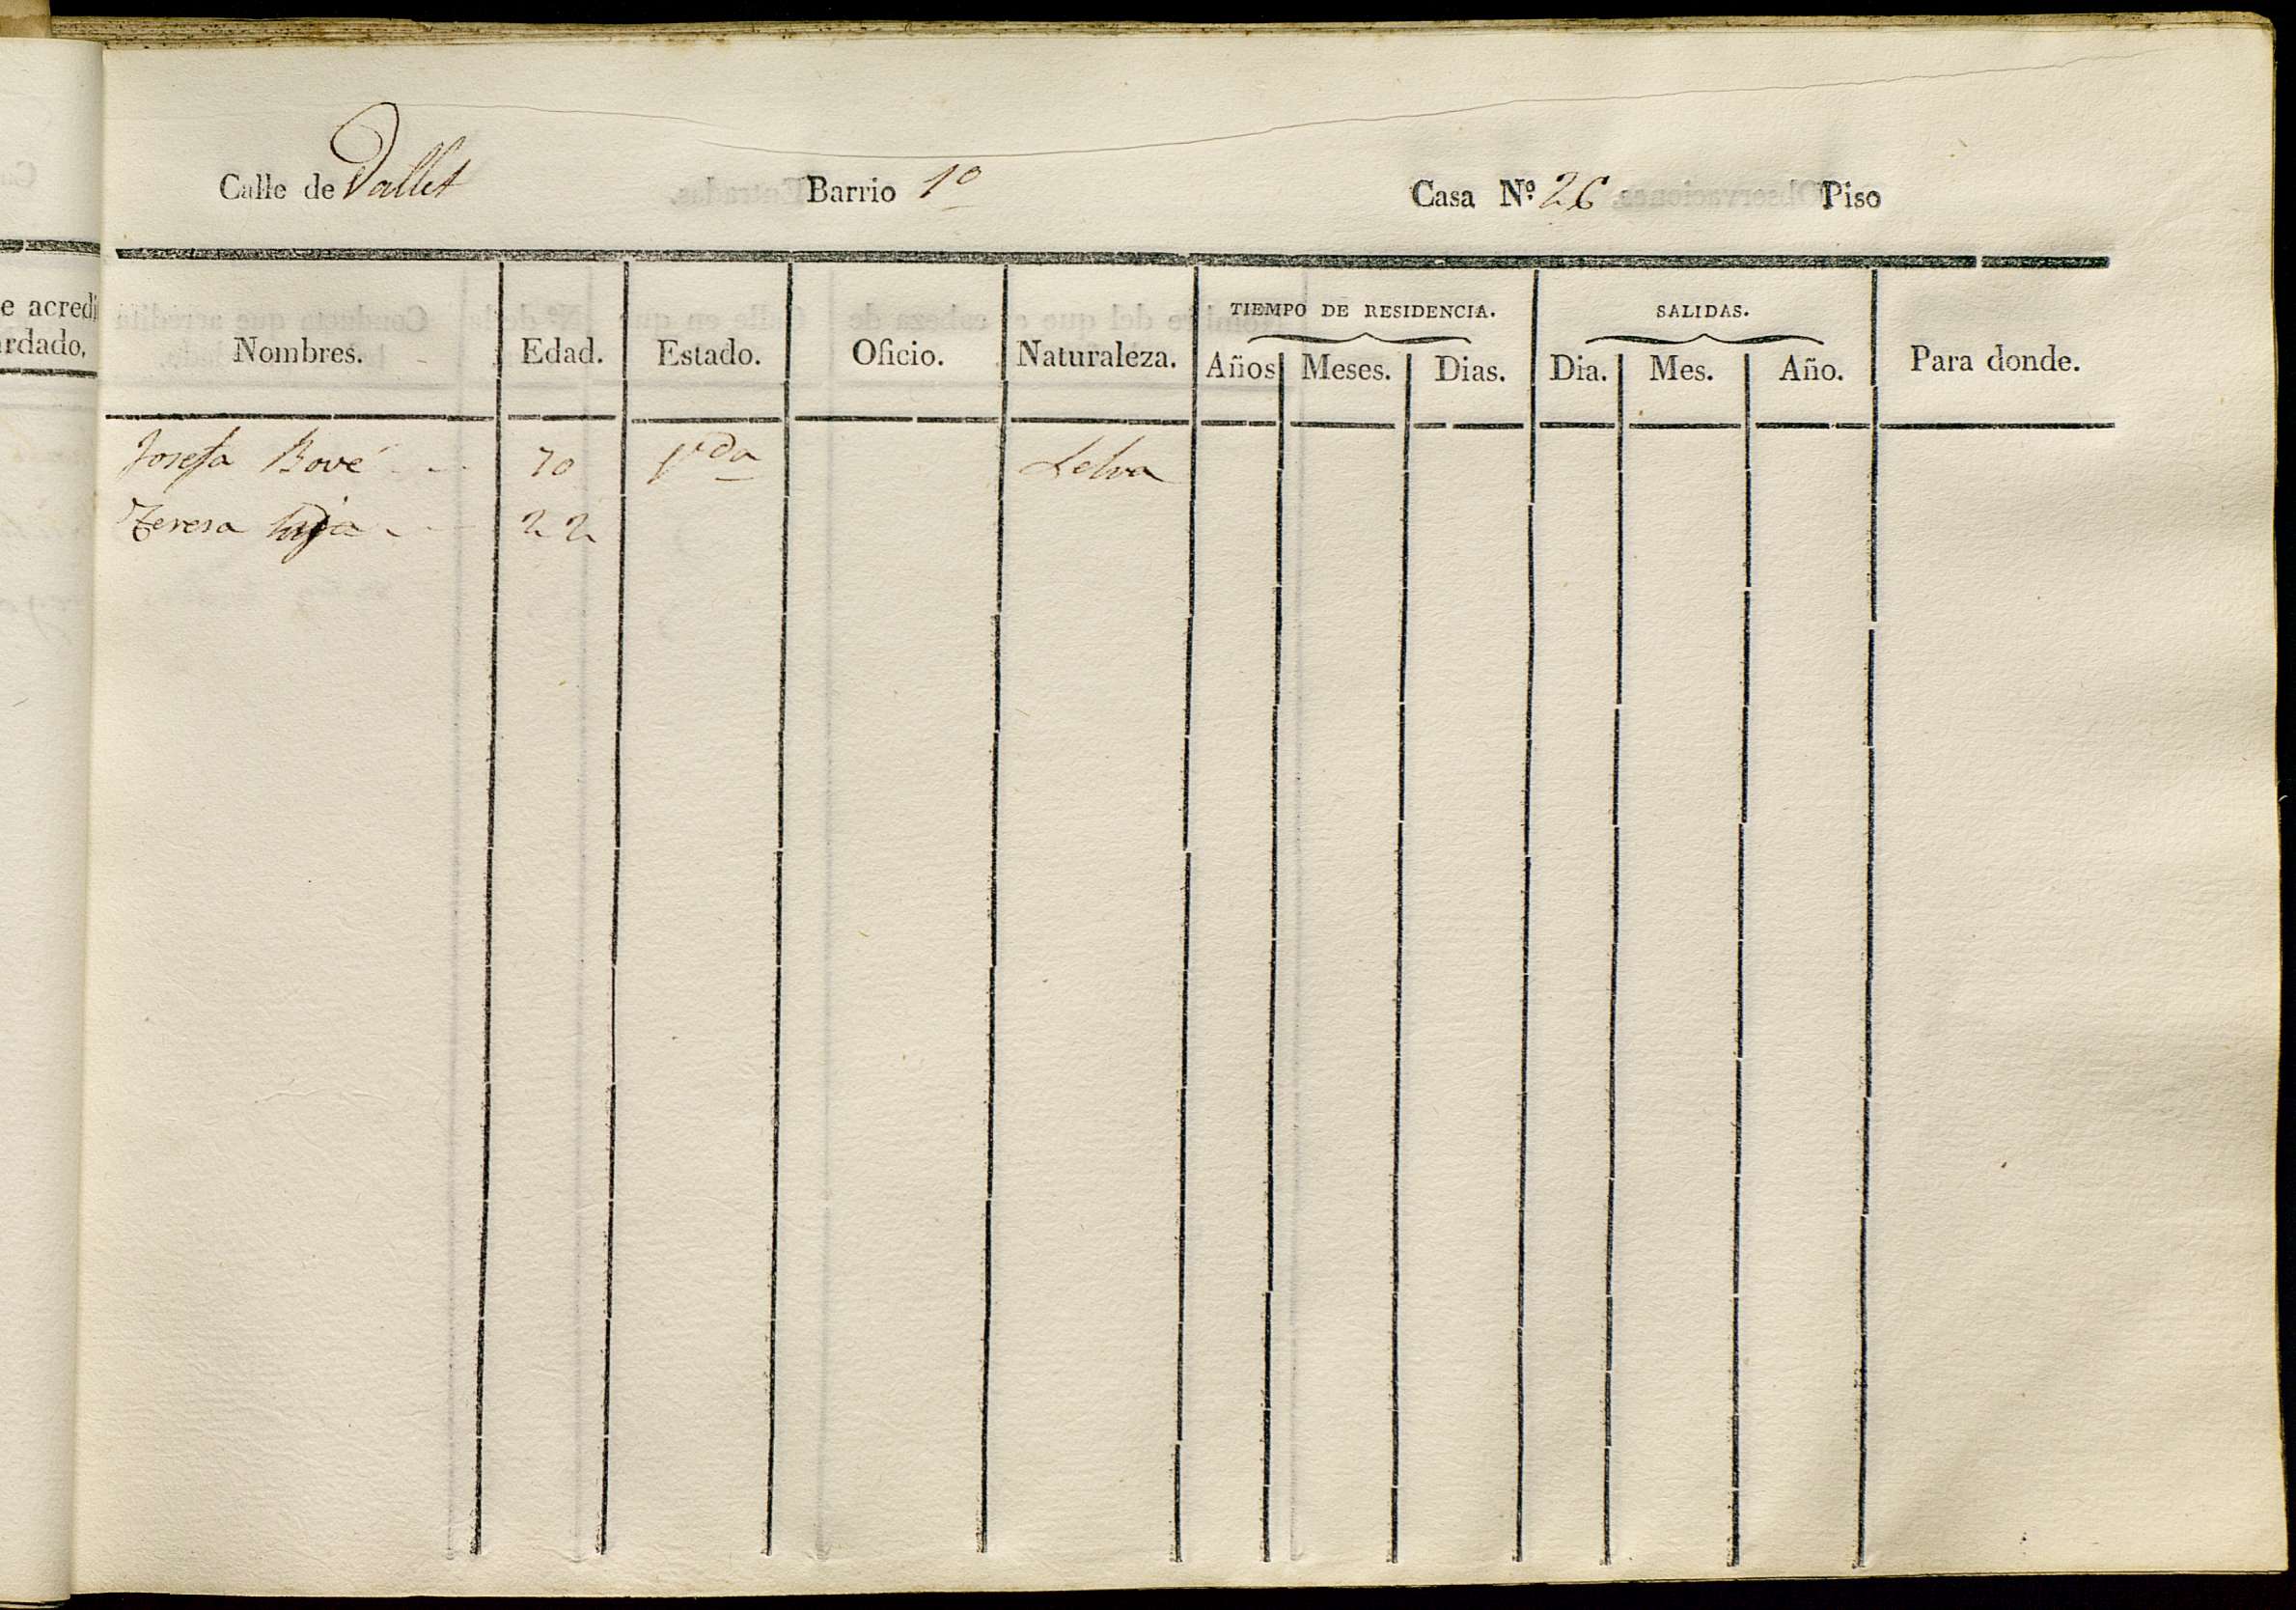 Calle de Vallet Barrio 1º Casa Nº. 26 Piso
TIEMPO DE RESIDENCIA. SALIDAS.
Nombres. Edad. Estado. Oficio. Naturaleza. Años Meses. Dias. Dia. Mes. Año. Para donde.
Josefa Bové 70 Vda Selva
Teresa hija 22
e acredi
ardado,